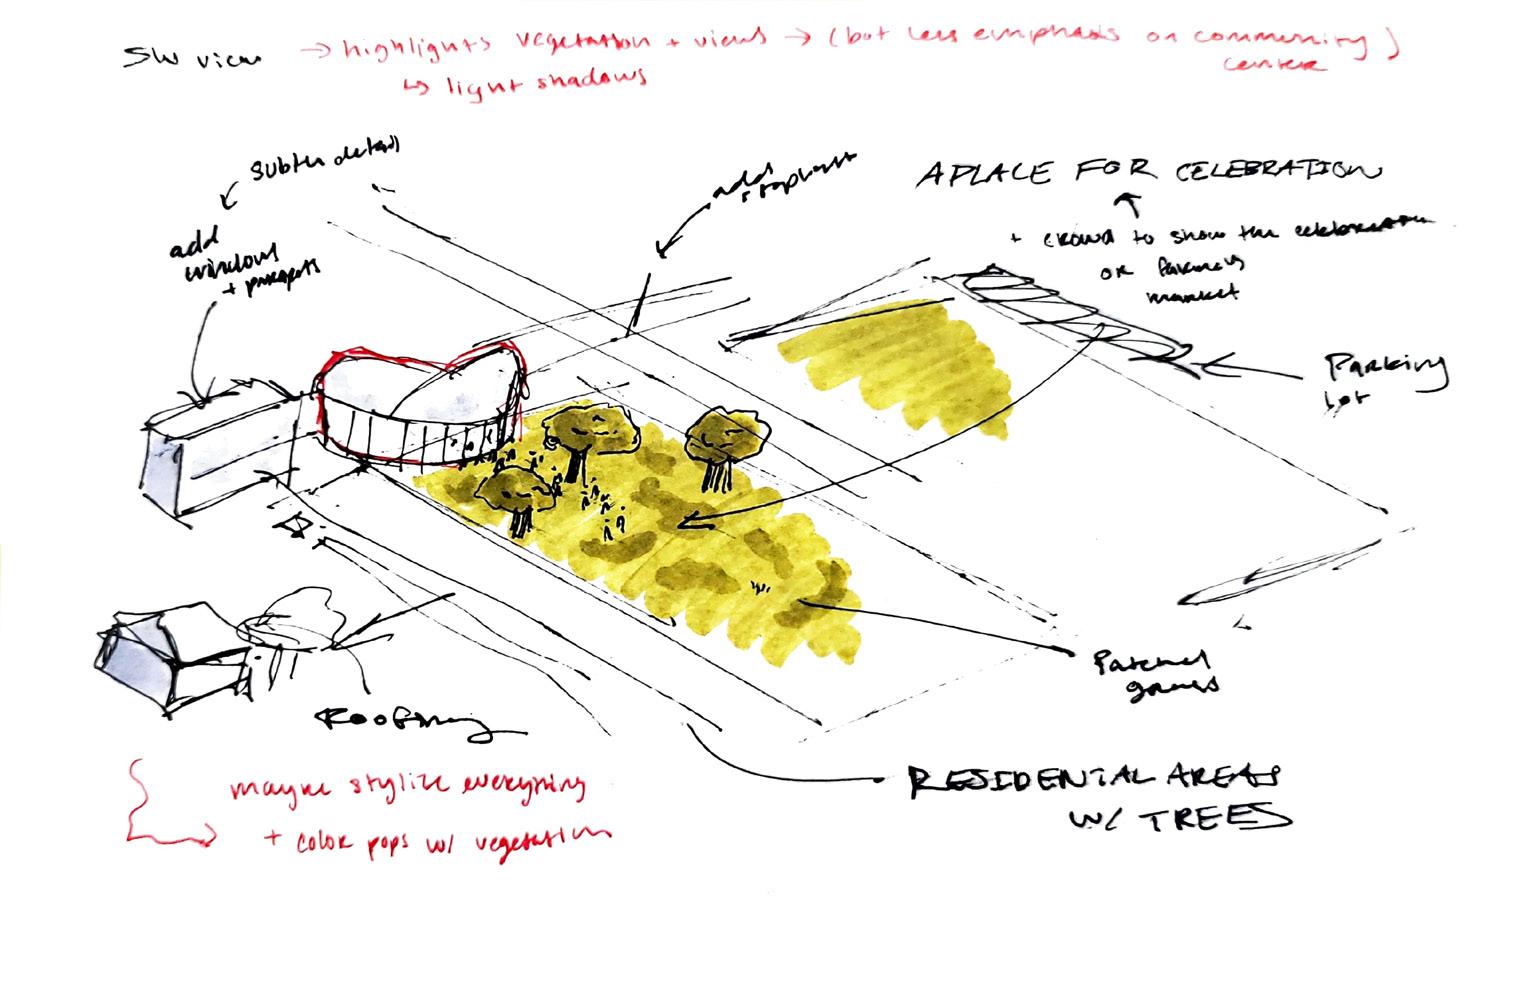 SW view → highlights vegetation + views → (but less emphasis on community)
center
↳ light shadows
subtle detail
add
windows
+ parapets
add
stoplight
A PLACE FOR CELEBRATION
+ crowd to show the celebration
or farmers
market
Parking
Lot
Patched
grass
Roofing
RESIDENTIAL AREAS
W/ TREES
maybe stylize everything
+ color pops w/ vegetation